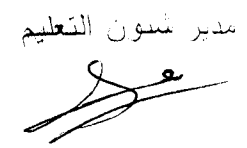 مدير شئون التعليم